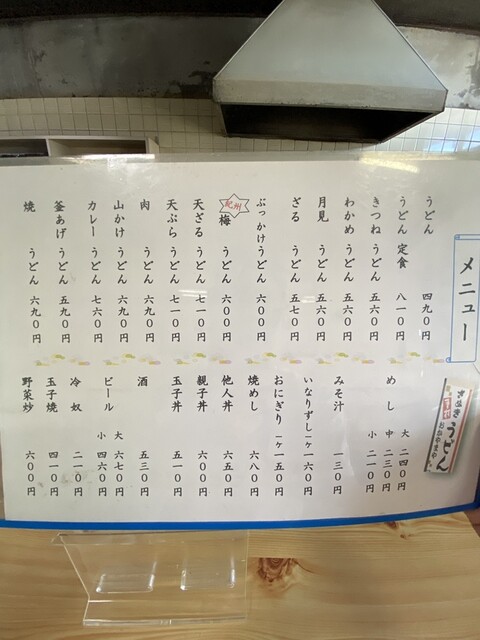 メニュー
うどん 四九〇円
うどん定食 八一〇円
きつねうどん 五六〇円
わかめうどん 五六〇円
月見うどん 五六〇円
ざるうどん 五七〇円
ぶっかけうどん 六〇〇円
紀州梅うどん 六〇〇円
天ざるうどん 七一〇円
天ぷらうどん 七一〇円
肉うどん 六九〇円
山かけうどん 六九〇円
カレーうどん 七六〇円
釜あげうどん 五九〇円
焼うどん 六九〇円
さぬき
手打
うどん
めし 大 二四〇円
中 二三〇円
小 二一〇円
みそ汁 一三〇円
いなりずし一ヶ一六〇円
おにぎり一ヶ一五〇円
焼めし 六八〇円
他人丼 六五〇円
親子丼 六〇〇円
玉子丼 五一〇円
酒 五三〇円
ビール 大 六七〇円
小 四六〇円
冷奴 二一〇円
玉子焼 四一〇円
野菜炒 六〇〇円